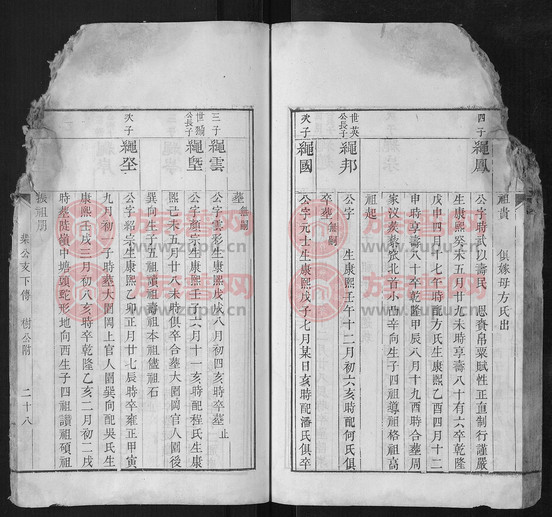 祖貴 俱嫁母方氏出
四子繩鳳
公字時武以壽民 恩賚帛粟賦性正直制行謹嚴
生康熙癸未五月廿九未時享壽八十有六卒乾隆
戊申四月十七午時配方氏生康熙乙酉四月十二
申時享壽八十卒乾隆甲辰八月十九酉時合墓周
家汊黃泰宸北首小西辛向生子四祖導祖格祖高
祖起
世英公長子繩邦
公字 生康熙壬午十二月初六亥時配何氏俱
卒墓無嗣
次子繩國
公字元士生康熙戊子七月某日亥時配潘氏俱卒
墓無嗣
三子繩雲
公字雲彩生康熙戊戌八月初四亥時卒墓 止
世顯公長子繩墍
公字顏宗生康熙壬子六月十一亥時配程氏生康
熙己未五月廿八未時俱卒合墓大園岡官人園後
巽向生子五祖頊祖壽祖本祖儘祖石
次子繩坙
公字紹宗生康熙乙卯正月廿七辰時卒雍正甲寅
九月初一子時墓大園岡上官人園巽向配吳氏生
康熙壬戌三月初八亥時卒乾隆乙亥二月初二戌
時墓陡嶺中塘頭蛇形地向酉生子四祖讀祖碩祖
振祖朋
榮公支下傳 樹公附 二十八
族譜网
zupu.cn